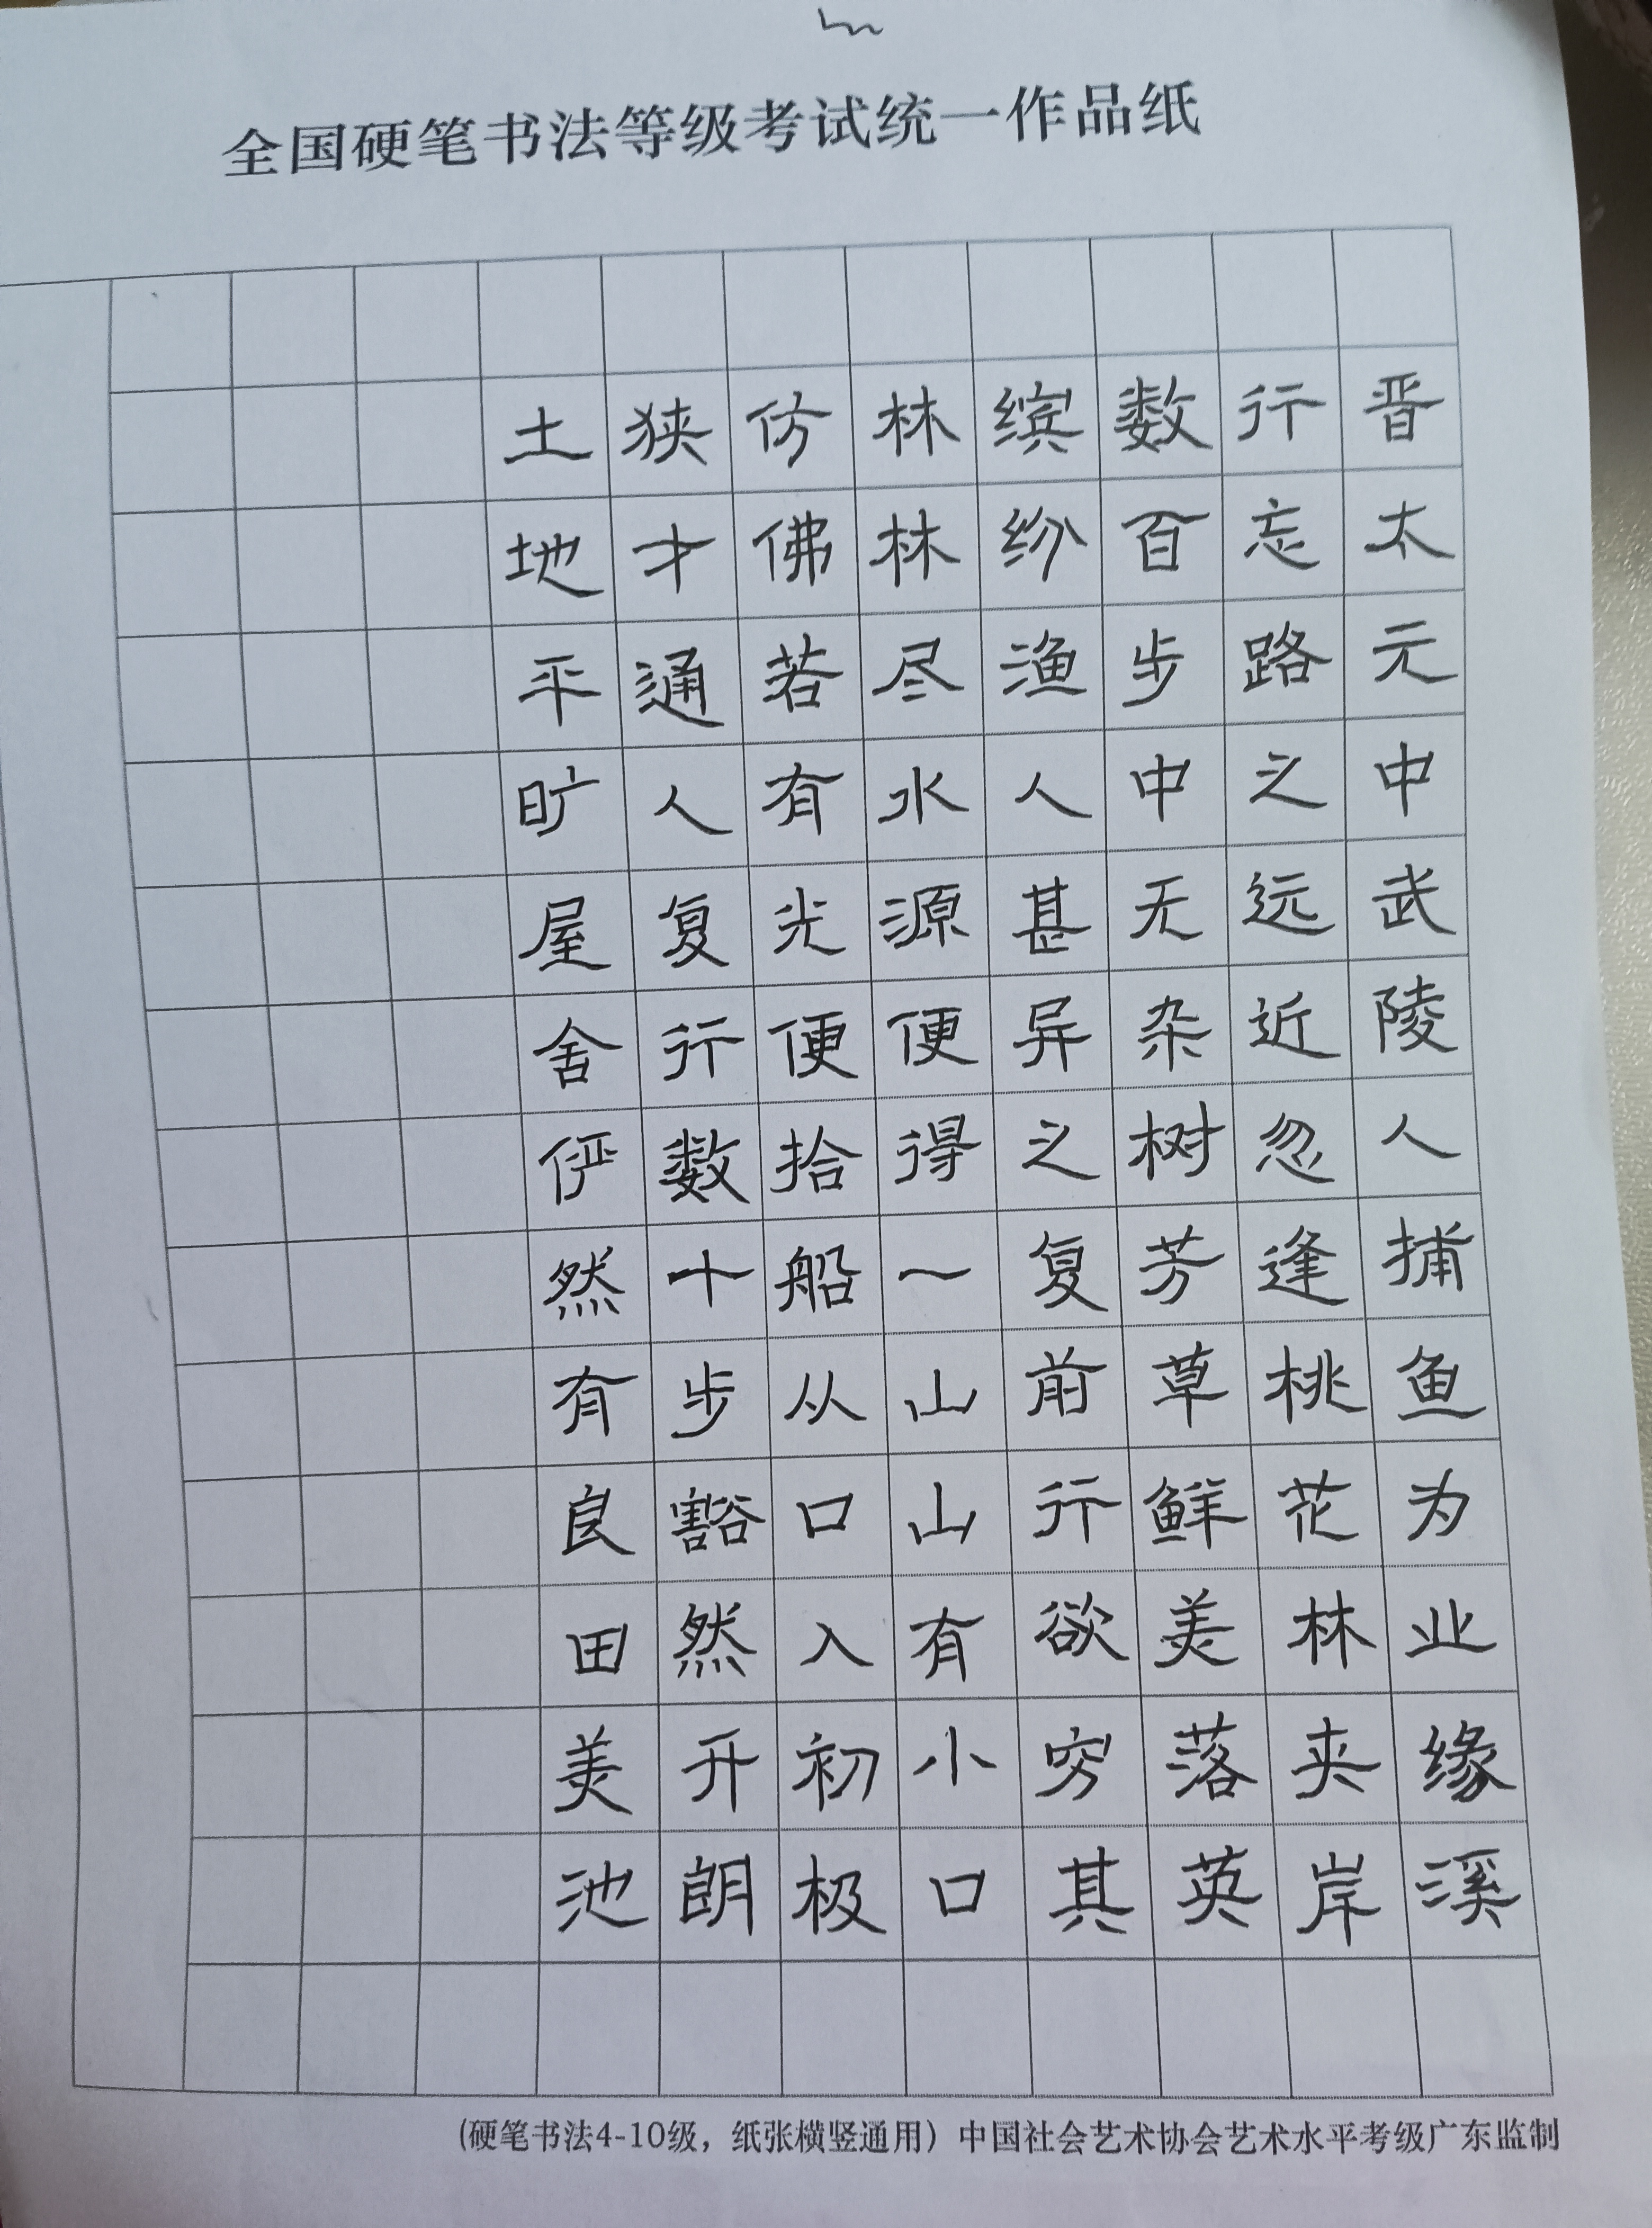 全国硬笔书法等级考试统一作品纸
晋太元中武陵人捕鱼为业缘溪
行忘路之远近忽逢桃花林夹岸
数百步中无杂树芳草鲜美落英
缤纷渔人甚异之复前行欲穷其
林林尽水源便得一山山有小口
仿佛若有光便拾船从口入初极
狭才通人复行数十步豁然开朗
土地平旷屋舍俨然有良田美池
(硬笔书法4-10级，纸张横竖通用) 中国社会艺术协会艺术水平考级广东监制